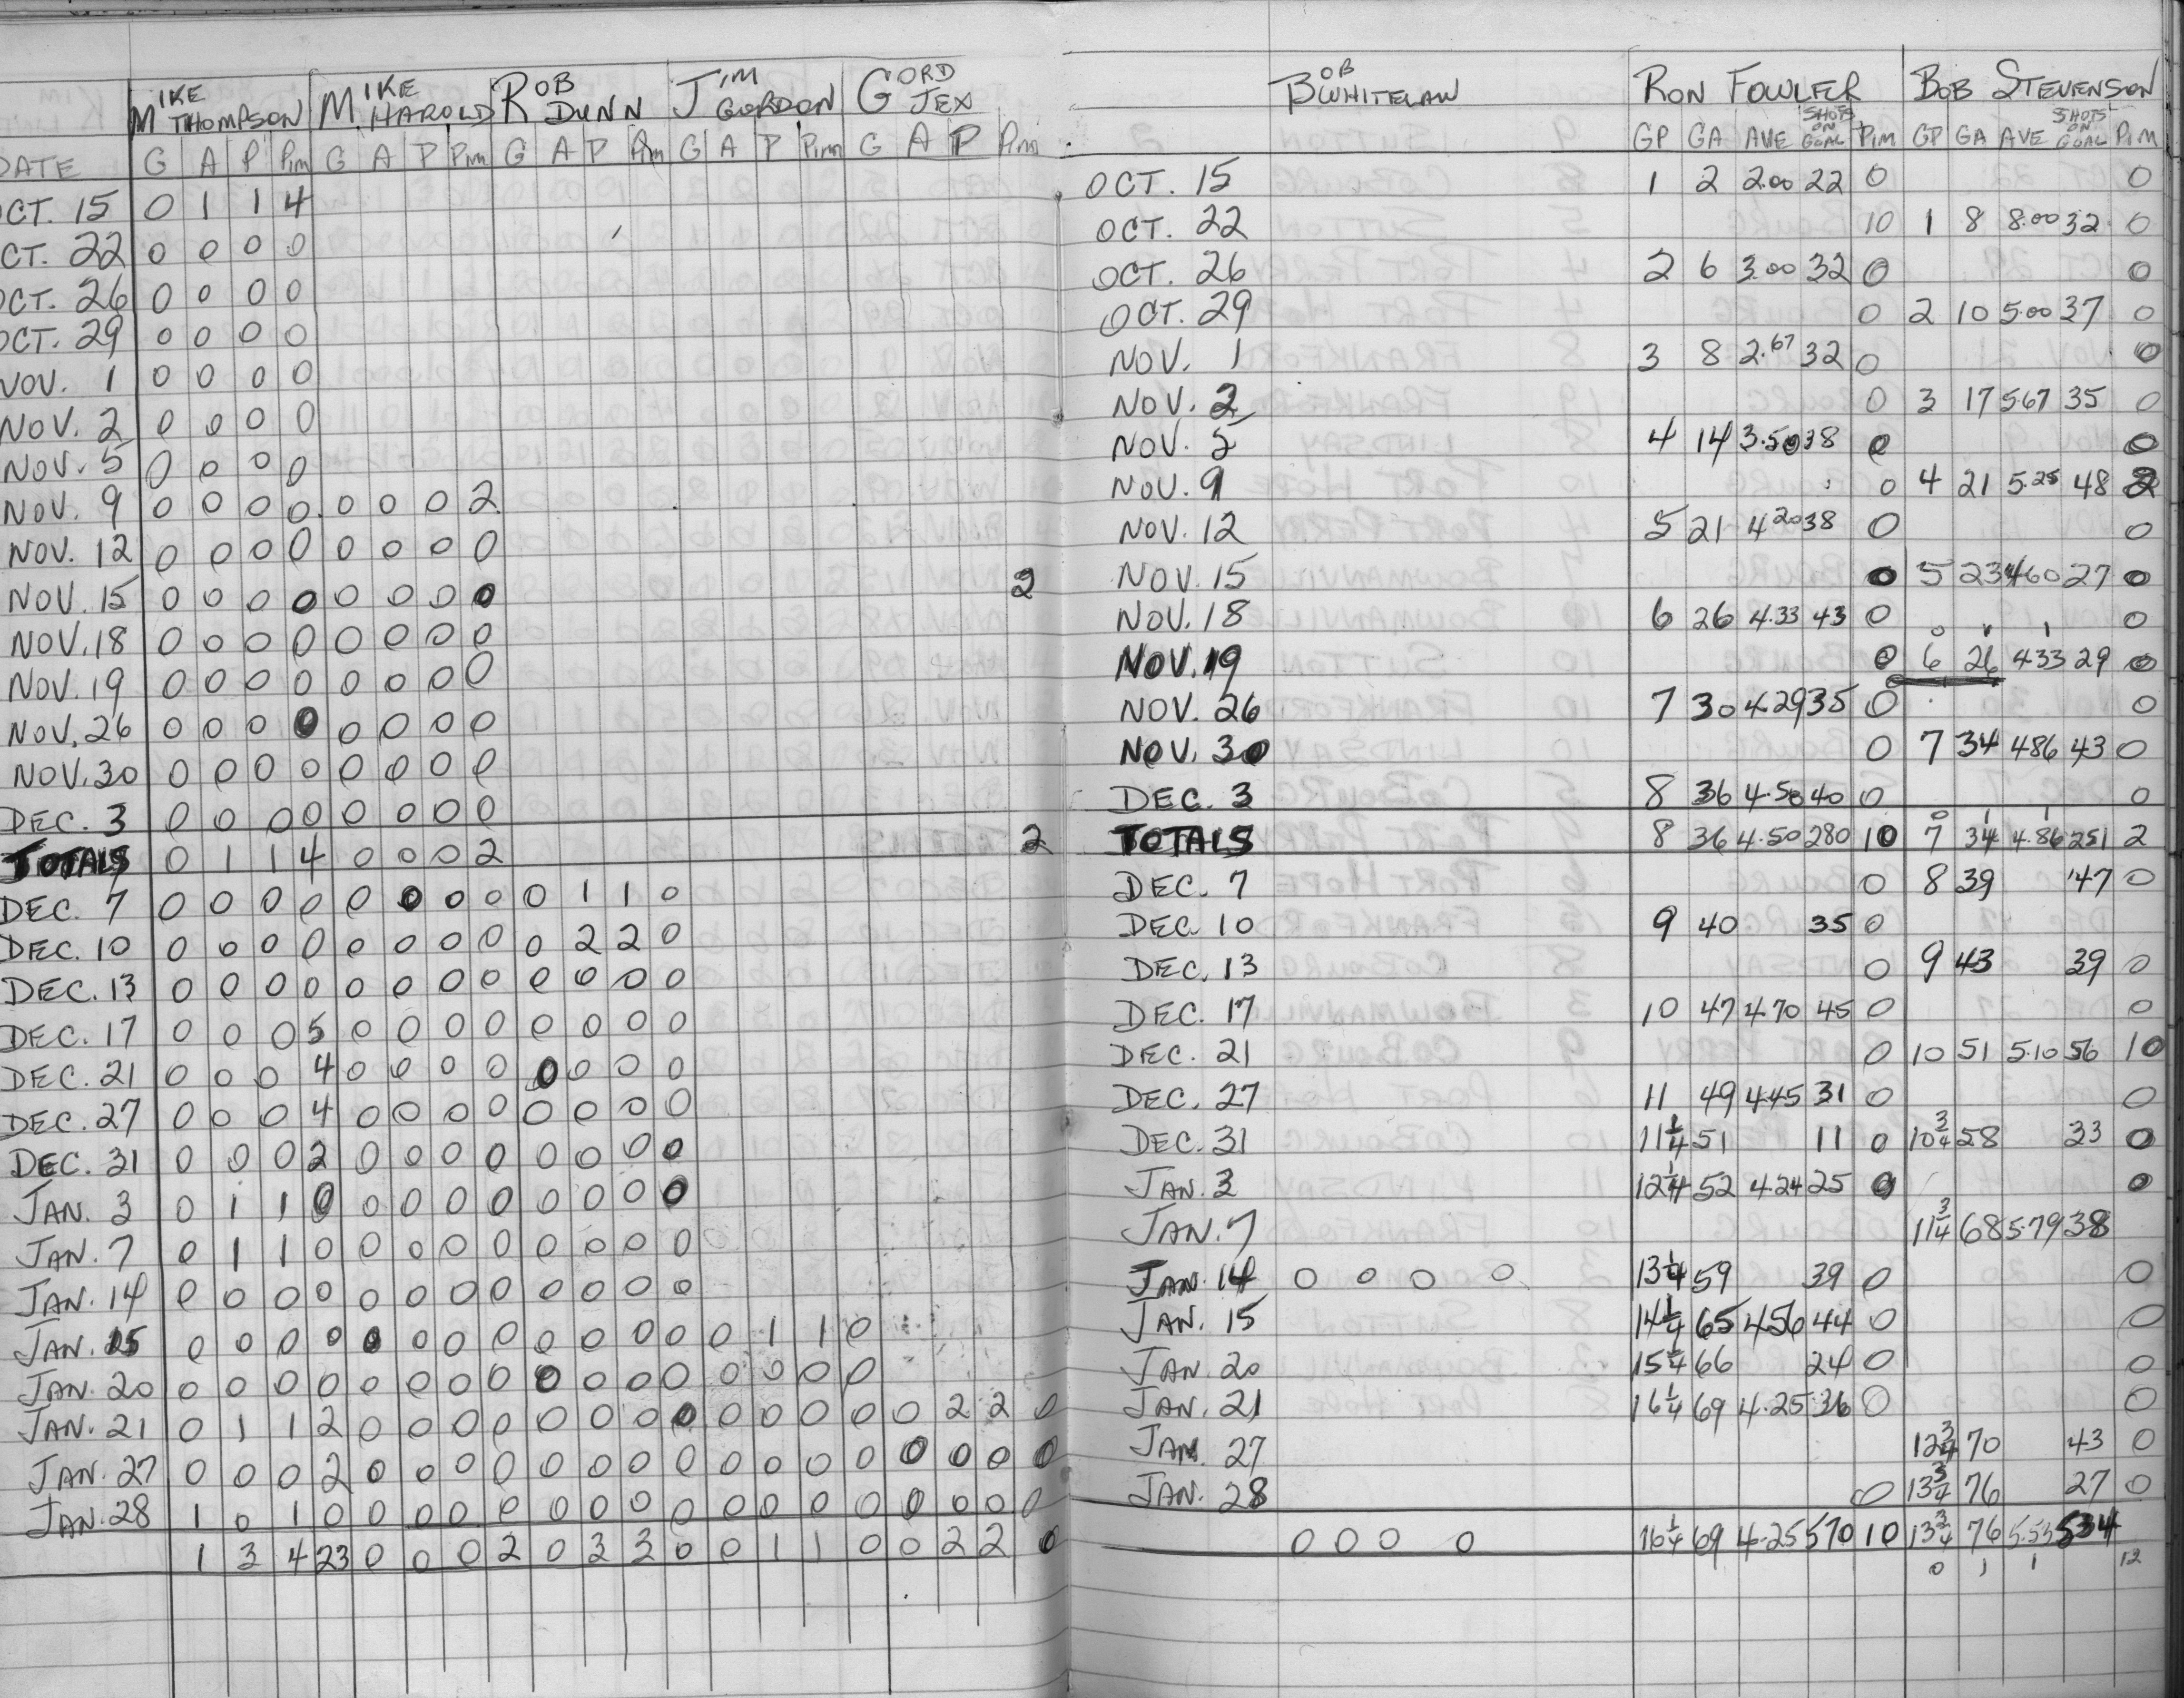 MIKE THOMPSON MIKE HAROLD ROB DUNN JIM GORDON GORD JEX
DATE G A P Pim G A P Pim G A P Pim G A P Pim G A P Pim
OCT. 15 0 1 1 4
OCT. 22 0 0 0 0
OCT. 26 0 0 0 0
OCT. 29 0 0 0 0
NOV. 1 0 0 0 0
NOV. 2 0 0 0 0
NOV. 5 0 0 0 0
NOV. 9 0 0 0 0 0 0 0 2
NOV. 12 0 0 0 0 0 0 0 0
NOV. 15 0 0 0 0 0 0 0 0 2
NOV. 18 0 0 0 0 0 0 0 0
NOV. 19 0 0 0 0 0 0 0 0
NOV. 26 0 0 0 0 0 0 0 0
NOV. 30 0 0 0 0 0 0 0 0
DEC. 3 0 0 0 0 0 0 0 0
TOTALS 0 1 1 4 0 0 0 2 2
DEC. 7 0 0 0 0 0 0 0 0 0 1 1 0
DEC. 10 0 0 0 0 0 0 0 0 0 2 2 0
DEC. 13 0 0 0 0 0 0 0 0 0 0 0 0
DEC. 17 0 0 0 5 0 0 0 0 0 0 0 0
DEC. 21 0 0 0 4 0 0 0 0 0 0 0 0
DEC. 27 0 0 0 4 0 0 0 0 0 0 0 0
DEC. 31 0 0 0 2 0 0 0 0 0 0 0 0
JAN. 3 0 1 1 0 0 0 0 0 0 0 0 0
JAN. 7 0 1 1 0 0 0 0 0 0 0 0 0
JAN. 14 0 0 0 0 0 0 0 0 0 0 0 0
JAN. 15 0 0 0 0 0 0 0 0 0 0 0 0 0 1 1 0
JAN. 20 0 0 0 0 0 0 0 0 0 0 0 0 0 0 0 0
JAN. 21 0 1 1 2 0 0 0 0 0 0 0 0 0 0 0 0 0 2 2 0
JAN. 27 0 0 0 2 0 0 0 0 0 0 0 0 0 0 0 0 0 0 0 0
JAN. 28 1 0 1 0 0 0 0 0 0 0 0 0 0 0 0 0 0 0 0 0
1 3 4 23 0 0 0 2 0 3 3 0 0 1 1 0 0 2 2 0
BOB WHITELAW RON FOWLER BOB STEVENSON
GP GA AVE SHOTS ON GOAL Pim GP GA AVE SHOTS ON GOAL Pim
OCT. 15 1 2 2.00 22 0 0
OCT. 22 10 1 8 8.00 32 0
OCT. 26 2 6 3.00 32 0 0
OCT. 29 0 2 10 5.00 37 0
NOV. 1 3 8 2.67 32 0 0
NOV. 2 0 3 17 5.67 35 0
NOV. 5 4 14 3.50 38 0 0
NOV. 9 0 4 21 5.25 48 2
NOV. 12 5 21 4.20 38 0 0
NOV. 15 0 5 23 4.60 27 0
NOV. 18 6 26 4.33 43 0 0
0 1 1
NOV. 19 0 6 26 4.33 29 0
NOV. 26 7 30 4.29 35 0 0
NOV. 30 0 7 34 4.86 43 0
DEC. 3 8 36 4.50 40 0 0
0 1 1
TOTALS 8 36 4.50 280 10 7 34 4.86 251 2
DEC. 7 0 8 39 47 0
DEC. 10 9 40 35 0
DEC. 13 0 9 43 39 0
DEC. 17 10 47 4.70 45 0 0
DEC. 21 0 10 51 5.10 56 10
DEC. 27 11 49 4.45 31 0 0
DEC. 31 11 1/4 51 11 0 10 3/4 58 33 0
JAN. 3 12 1/4 52 4.24 25 0 0
JAN. 7 11 3/4 68 5.79 38
JAN. 14 0 0 0 0 13 1/4 59 39 0 0
JAN. 15 14 1/4 65 4.56 44 0 0
JAN. 20 15 1/4 66 24 0 0
JAN. 21 16 1/4 69 4.25 36 0 0
JAN. 27 12 3/4 70 43 0
JAN. 28 0 13 3/4 76 27 0
0 0 0 0 16 1/4 69 4.25 570 10 13 3/4 76 5.53 534
0 1 1 12